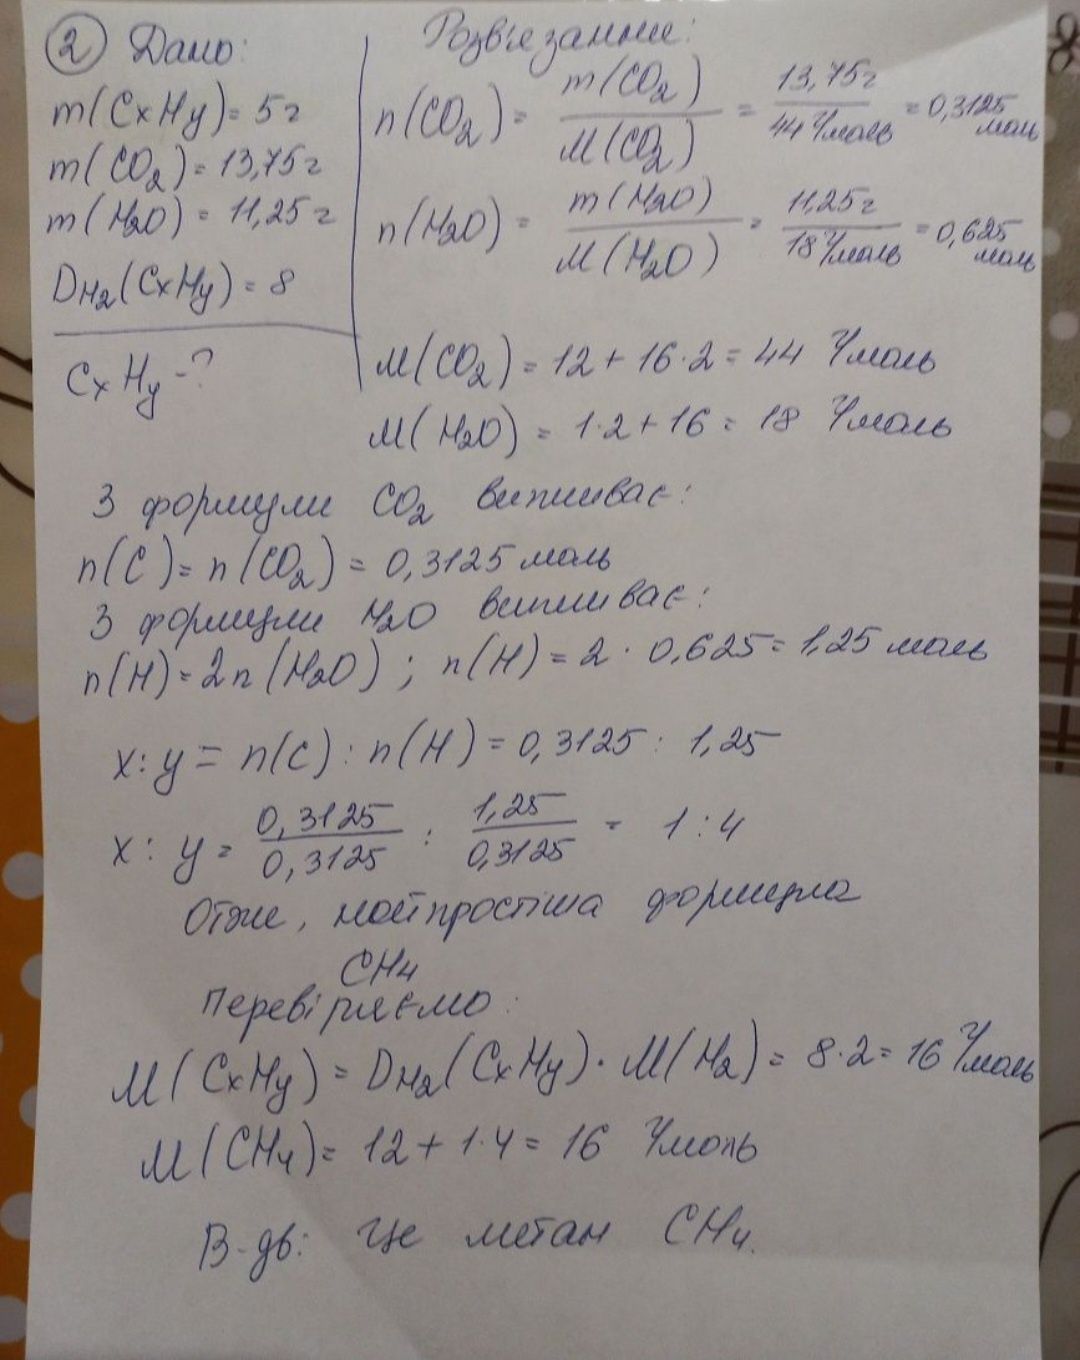 2 Дано:
m(CxHy) = 5г
m(CO2) = 13,75г
m(H2O) = 11,25г
DH2(CxHy) = 8
CxHy - ?
Розв'язання:
n(CO2) = m(CO2) / M(CO2) = 13,75г / 44 г/моль = 0,3125 моль
n(H2O) = m(H2O) / M(H2O) = 11,25г / 18 г/моль = 0,625 моль
M(CO2) = 12 + 16·2 = 44 г/моль
M(H2O) = 1·2 + 16 = 18 г/моль
З формули CO2 випливає:
n(C) = n(CO2) = 0,3125 моль
З формули H2O випливає:
n(H) = 2n(H2O) ; n(H) = 2 · 0,625 = 1,25 моль
x : y = n(C) : n(H) = 0,3125 : 1,25
x : y = 0,3125 / 0,3125 : 1,25 / 0,3125 = 1 : 4
Отже, найпростіша формула
CH4
Перевіряємо:
M(CxHy) = DH2(CxHy) · M(H2) = 8·2 = 16 г/моль
M(CH4) = 12 + 1·4 = 16 г/моль
В-дь: це метан CH4.